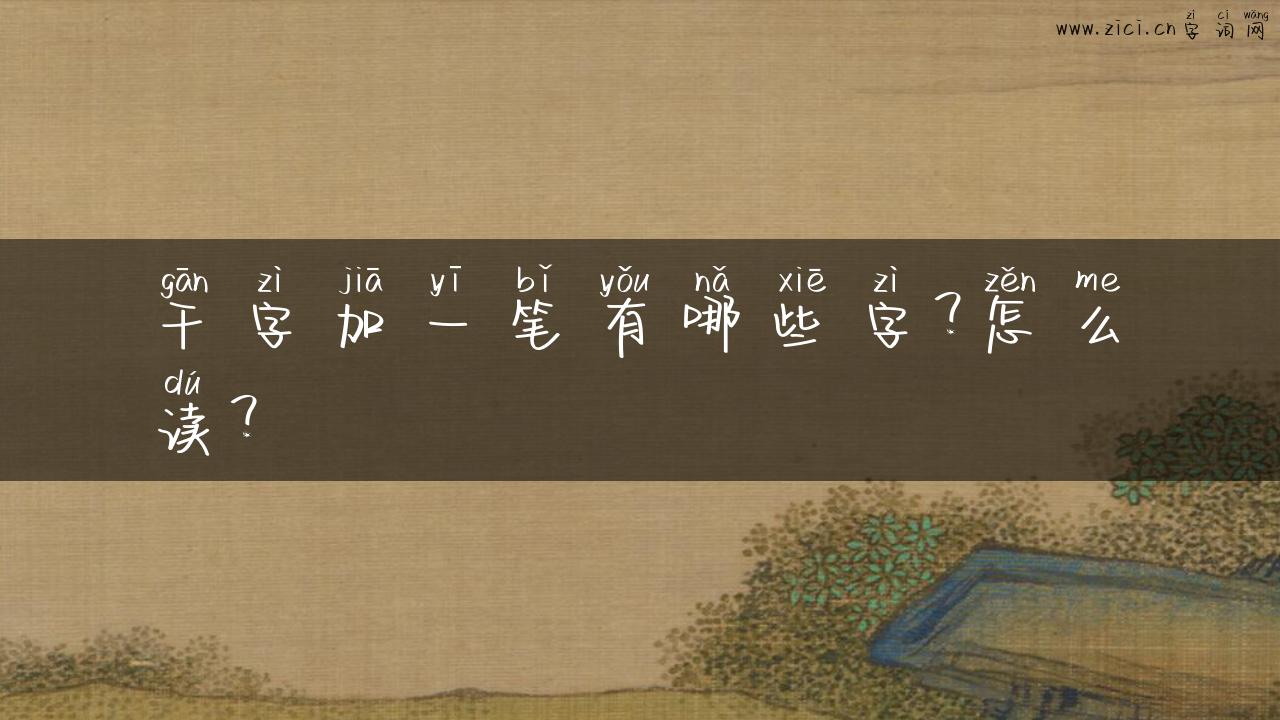 zì cí wǎng
www.zici.cn 字词网
gān zì jiā yī bǐ yǒu nǎ xiē zì zěn me
干字加一笔有哪些字?怎么
dú
读?